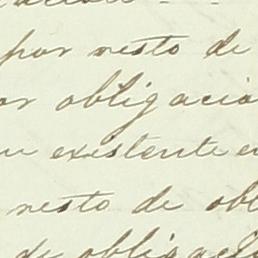 por resto de
or obligacio
existente e
resto de obl
de obligac